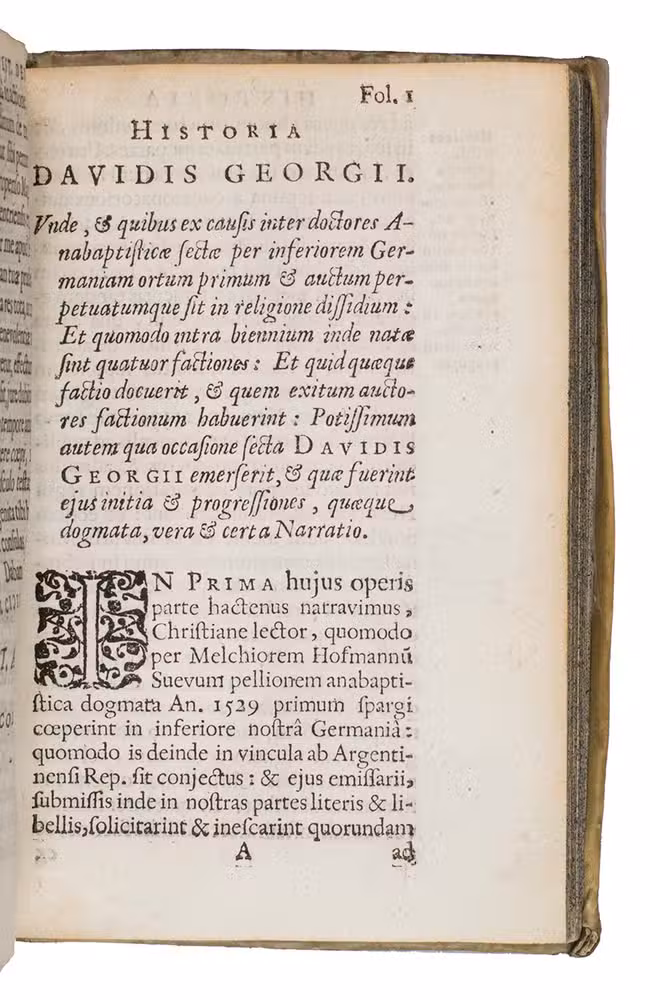 Fol. 1
HISTORIA
DAVIDIS GEORGII.
Vnde, & quibus ex causis inter doctores A-
nabaptisticæ sectæ per inferiorem Ger-
maniam ortum primum & auctum per-
petuatumque sit in religione dissidium:
Et quomodo intra biennium inde natæ
sint quatuor factiones: Et quid quæque
factio docuerit, & quem exitum aucto-
res factionum habuerint: Potissimum
autem qua occasione secta DAVIDIS
GEORGII emerserit, & quæ fuerint
ejus initia & progressiones, quæque
dogmata, vera & certa Narratio.
IN PRIMA hujus operis
parte hactenus narravimus,
Christiane lector, quomodo
per Melchiorem Hofmannũ
Suevum pellionem anabapti-
stica dogmata An. 1529 primum spargi
cœperint in inferiore nostrâ Germaniâ:
quomodo is deinde in vincula ab Argenti-
nensi Rep. sit conjectus: & ejus emissarii,
submissis inde in nostras partes literis & li-
bellis, solicitarint & inescarint quorundam
A ad